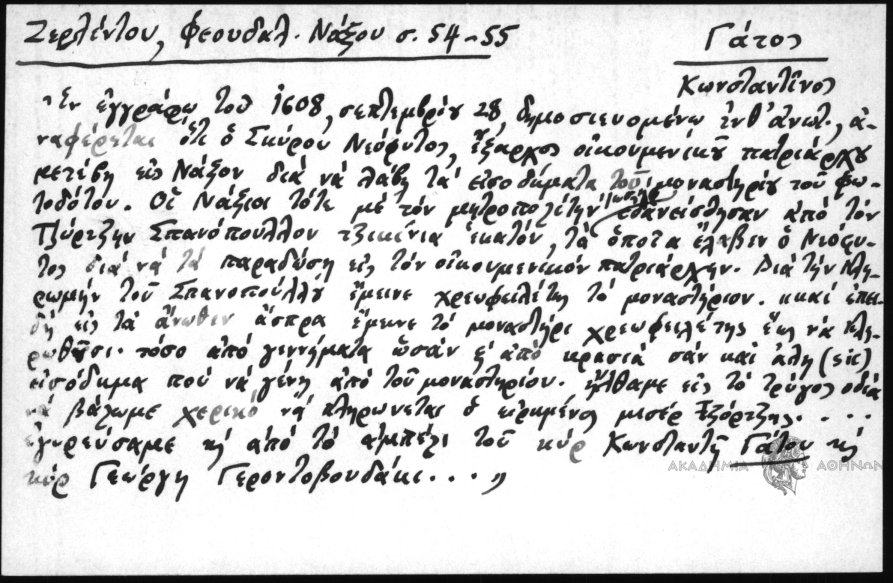 Ζερλέντου, Φεουδαλ. Νάξου σ. 54-55
Γάτος
Κωνσταντῖνος
"Ἐν ἐγγράφῳ τοῦ 1608, σεπτεμβρίου 28, δημοσιευομένῳ ἔνθ' ἀνωτ., ἀ-
ναφέρεται ὅτι ὁ Σκύρου Νεόφυτος, ἔξαρχος οἰκουμενικοῦ πατριάρχου
μετέβη εἰς Νάξον διὰ νὰ λάβῃ τὰ εἰσοδήματα τοῦ μοναστηρίου τοῦ Φω-
τοδότου. Οἱ Νάξιοι τότε μὲ τὸν μητροπολίτην ἐδανείσθησαν ἀπὸ τὸν
Τζώρτζην Σπανόπουλλον τζικίνια ἑκατόν, τὰ ὁποῖα ἔλαβεν ὁ Νεόφυ-
τος διὰ νὰ τὰ παραδώσῃ εἰς τὸν οἰκουμενικὸν πατριάρχην. Διὰ τὴν πλη-
ρωμὴν τοῦ Σπανοπούλλου ἔμεινε χρεωφειλέτης τὸ μοναστήριον. "καὶ ἐπει-
δὴ εἰς τὰ ἄνωθεν ἄσπρα ἔμεινε τὸ μοναστήρι χρεωφειλέτης ἕως νὰ πλε-
ρωθῆσι· τόσο ἀπὸ γεννήματα ὡσὰν ἀπὸ κρασιὰ σὰν καὶ ἄλη (sic)
εἰσόδημα ποὺ νὰ γένῃ ἀπὸ τοῦ μοναστηρίου. ἤλθαμε εἰς τὸ τρύγος διὰ
νὰ βάλωμε χερικὸ νὰ πληρώνεται ὁ εἰρημένος μισὲρ Τζόρτζης. . . .
ἐγυρεύσαμε κῇ ἀπὸ τὸ ἀμπέλι τοῦ κὺρ Κωνσταντῆ Γάτου κῇ
κὺρ Γεώργη Γεροντοβουδάκι. . . . "
ΑΚΑΔΗΜΙΑ ΑΘΗΝΩΝ